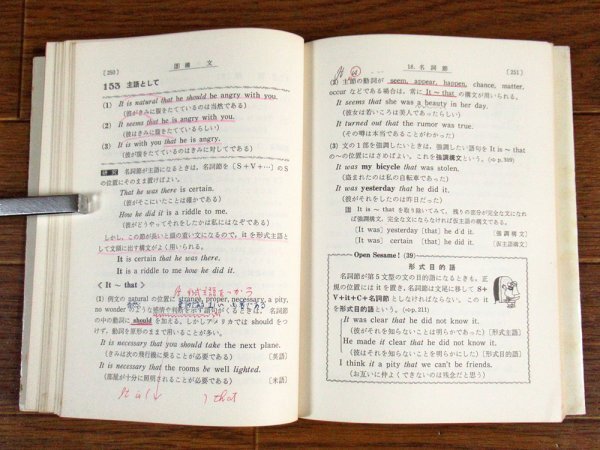 〔250〕
153 主語として
(1) It is natural that he should be angry with you.
(彼がきみに腹をたてているのは当然である)
(2) It seems that he is angry with you.
(彼はきみに腹をたてているらしい)
(3) It is with you that he is angry.
(彼が腹をたてているのはきみに対してである)
名詞節が主語になるときは，名詞節を〔S+V+…〕のS
の位置にそのまま置けばよい．
That he was there is certain.
(彼がそこにいたことは確かである)
How he did it is a riddle to me.
(彼がどうやってそれをしたかは私にはなぞである)
しかし，この節が長いと頭の重い文になるので，it を形式主語とし
て文頭に出す構文がよく用いられる．
It is certain that he was there.
It is a riddle to me how he did it.
《It ～ that》
(1) 例文の natural の位置に strange, proper, necessary, a pity,
no wonder のような感情や判断を示す語句がくるときは，名詞節
の中の動詞に should を加える．しかしアメリカでは should をつ
けず，動詞を原形のまま用いることが多い．
It is necessary that you should take the next plane.
(きみは次の飛行機に乗ることが必要である) 〔英語〕
It is necessary that the rooms be well lighted.
(部屋が十分に照明されることが必要である) 〔米語〕
that
18. 名詞節
〔251〕
(2) 主節の動詞が seem, appear, happen, chance, matter,
occur などである場合は，常に It ～ that の構文が用いられる．
It seems that she was a beauty in her day.
(彼女は若いころは美人であったらしい)
It turned out that the rumor was true.
(その噂は本当であることがわかった)
(3) 文の1部を強調したいときは，強調したい語句を It is ～ that
の～の位置にはさめばよい．これを強調構文という．(⇨p. 309)
It was my bicycle that was stolen.
(盗まれたのは私の自転車であった)
It was yesterday that he did it.
(彼がそれをしたのは昨日だった)
It is ～ that を取り除いてみて，残りの部分が完全な文になれ
ば強調構文，完全な文にならなければ仮主語の構文である．
[It was] yesterday [that] he did it. 〔強調構文〕
[It was] certain [that] he did it. 〔仮主語構文〕
Open Sesame! (39)
形式目的語
名詞節が第5文型の文の目的語になるときも，正
規の位置には it を置き，名詞節は文尾に移して S+
V+it+C+名詞節 としなければならない．この it
を形式目的語という．(⇨p. 211)
It was clear that he did not know it.
(彼がそれを知らないことは明らかであった)〔形式主語〕
He made it clear that he did not know it.
(彼はそれを知らないことを明らかにした)〔形式目的語〕
I think it a pity that we can't be friends.
(お互いに仲よくできないのは残念だと思う)